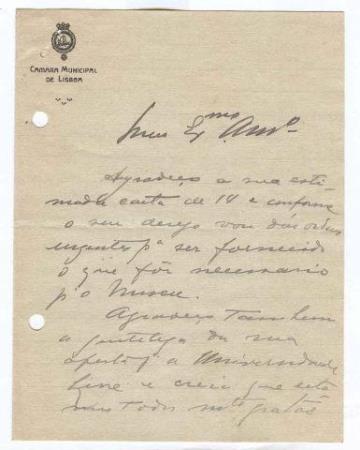 CAMARA MUNICIPAL
DE LISBOA
Meu Exmo Amo
Agradeço a sua esti-
mada carta de 14 e conforme
o seu desejo vou dár ordens
urgentes pa ser fornecido
o que fôr necessario
pa o Museu.
Agradeço tambem
a gentileza da sua
oferta pa a Universidade
Livre e creio que
todos mto gratos